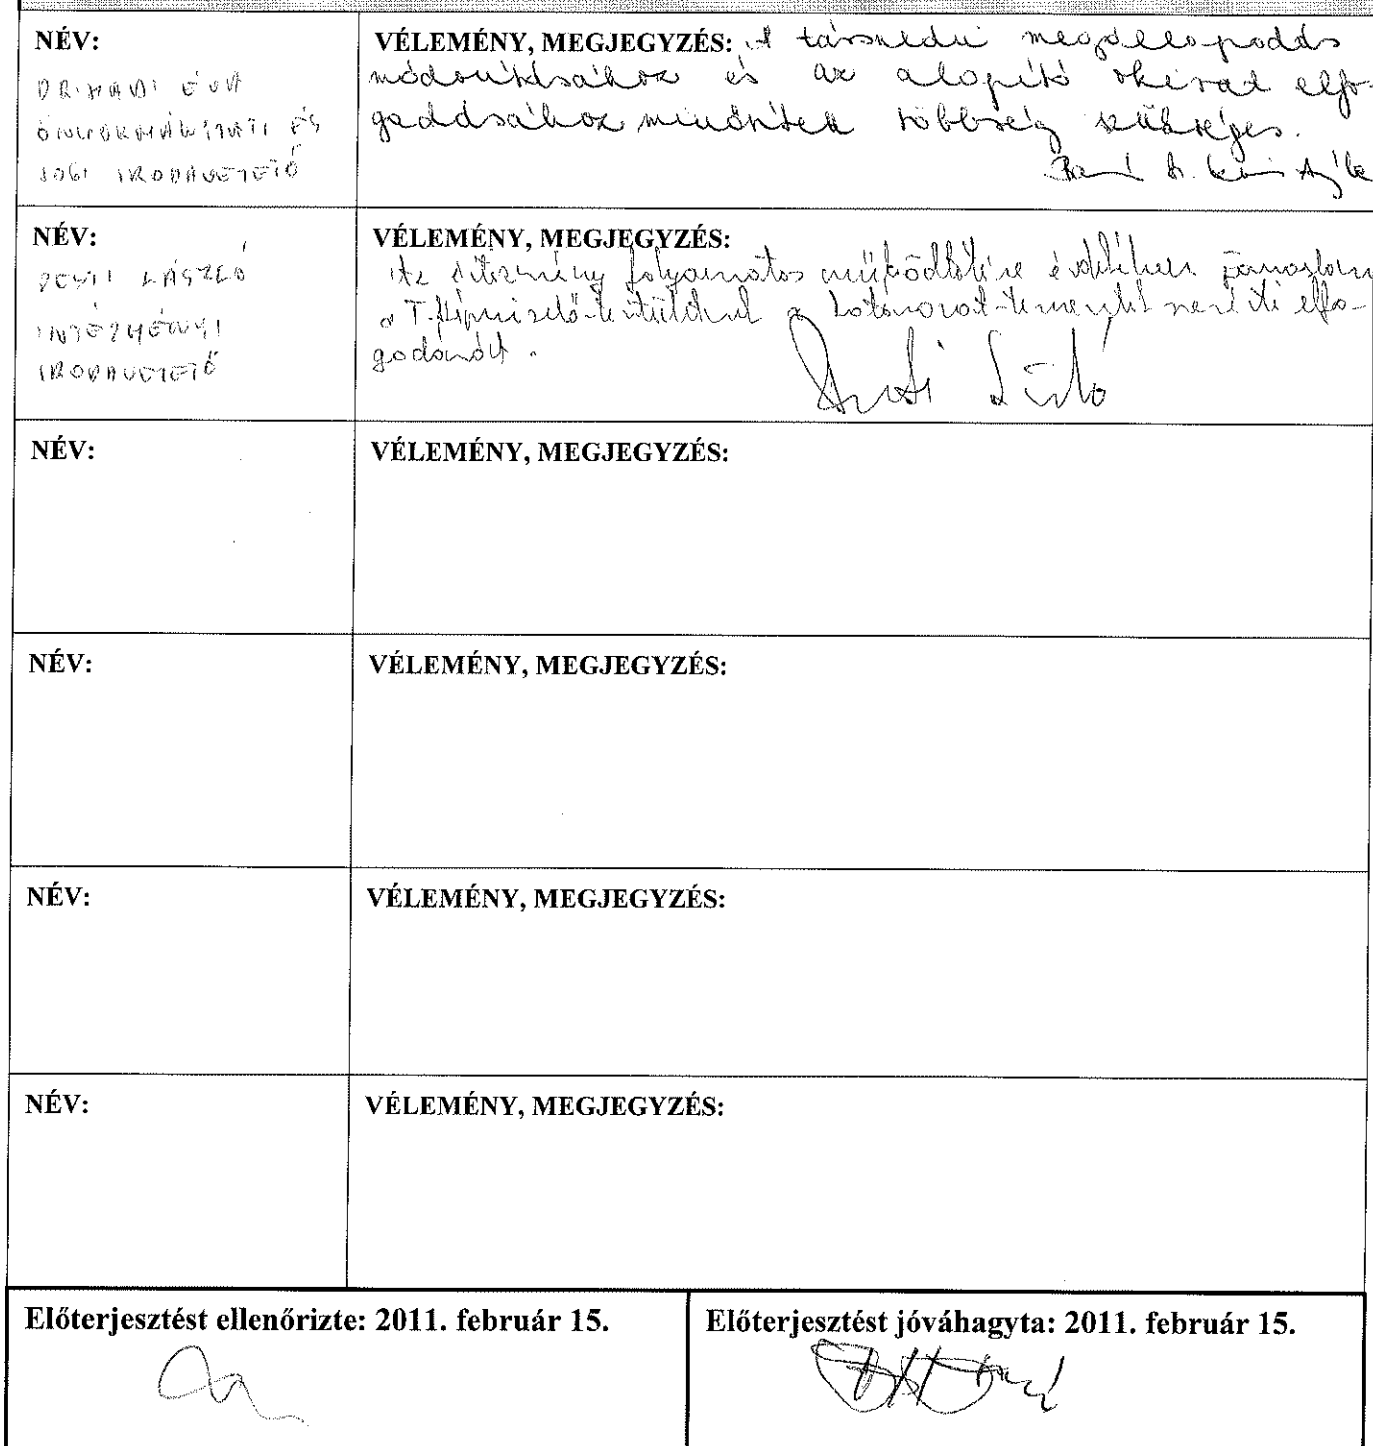 NÉV:
DR. HADI ÉVA
ÖNKORMÁNYZATI ÉS
JOGI IRODAVEZETŐ
VÉLEMÉNY, MEGJEGYZÉS: A társulási megállapodás
módosításához és az alapító okirat elfo-
gadásához minősített többség szükséges.
NÉV:
PESTI LÁSZLÓ
INTÉZMÉNYI
IRODAVEZETŐ
VÉLEMÉNY, MEGJEGYZÉS:
Az intézmény folyamatos működtetése érdekében javaslom
a T. Képviselő-testületnek a határozat-tervezetek elfo-
gadását.
NÉV:
VÉLEMÉNY, MEGJEGYZÉS:
NÉV:
VÉLEMÉNY, MEGJEGYZÉS:
NÉV:
VÉLEMÉNY, MEGJEGYZÉS:
NÉV:
VÉLEMÉNY, MEGJEGYZÉS:
Előterjesztést ellenőrizte: 2011. február 15.
Előterjesztést jóváhagyta: 2011. február 15.